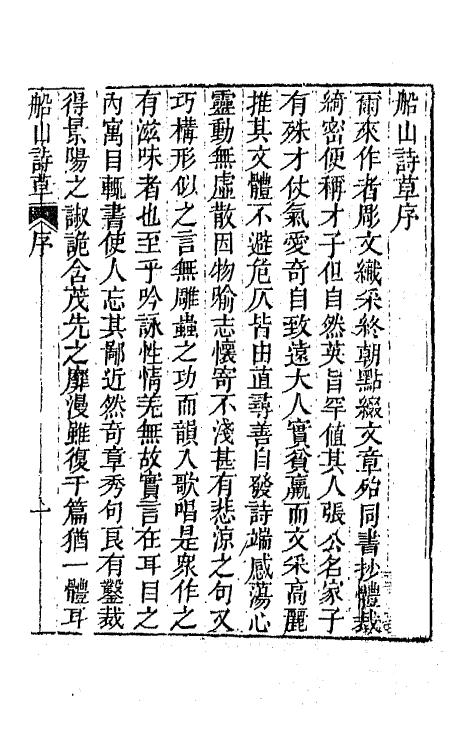 船山詩草序
爾來作者彫文織采終朝點綴文章殆同書抄體裁
綺密便稱才子但自然英旨罕值其人張公名家子
有殊才仗氣愛奇自致遠大人實貧羸而文采高麗
推其文體不避危仄皆由直尋善自發詩端感蕩心
靈動無虛散因物喻志懷寄不淺甚有悲涼之句又
巧構形似之言無雕蟲之功而韻入歌唱是衆作之
有滋味者也至乎吟詠性情羌無故實言在耳目之
內寓目輒書使人忘其鄙近然奇章秀句良有鑿裁
得景陽之諔詭含茂先之靡漫雖復千篇猶一體耳
船山詩草 序 一